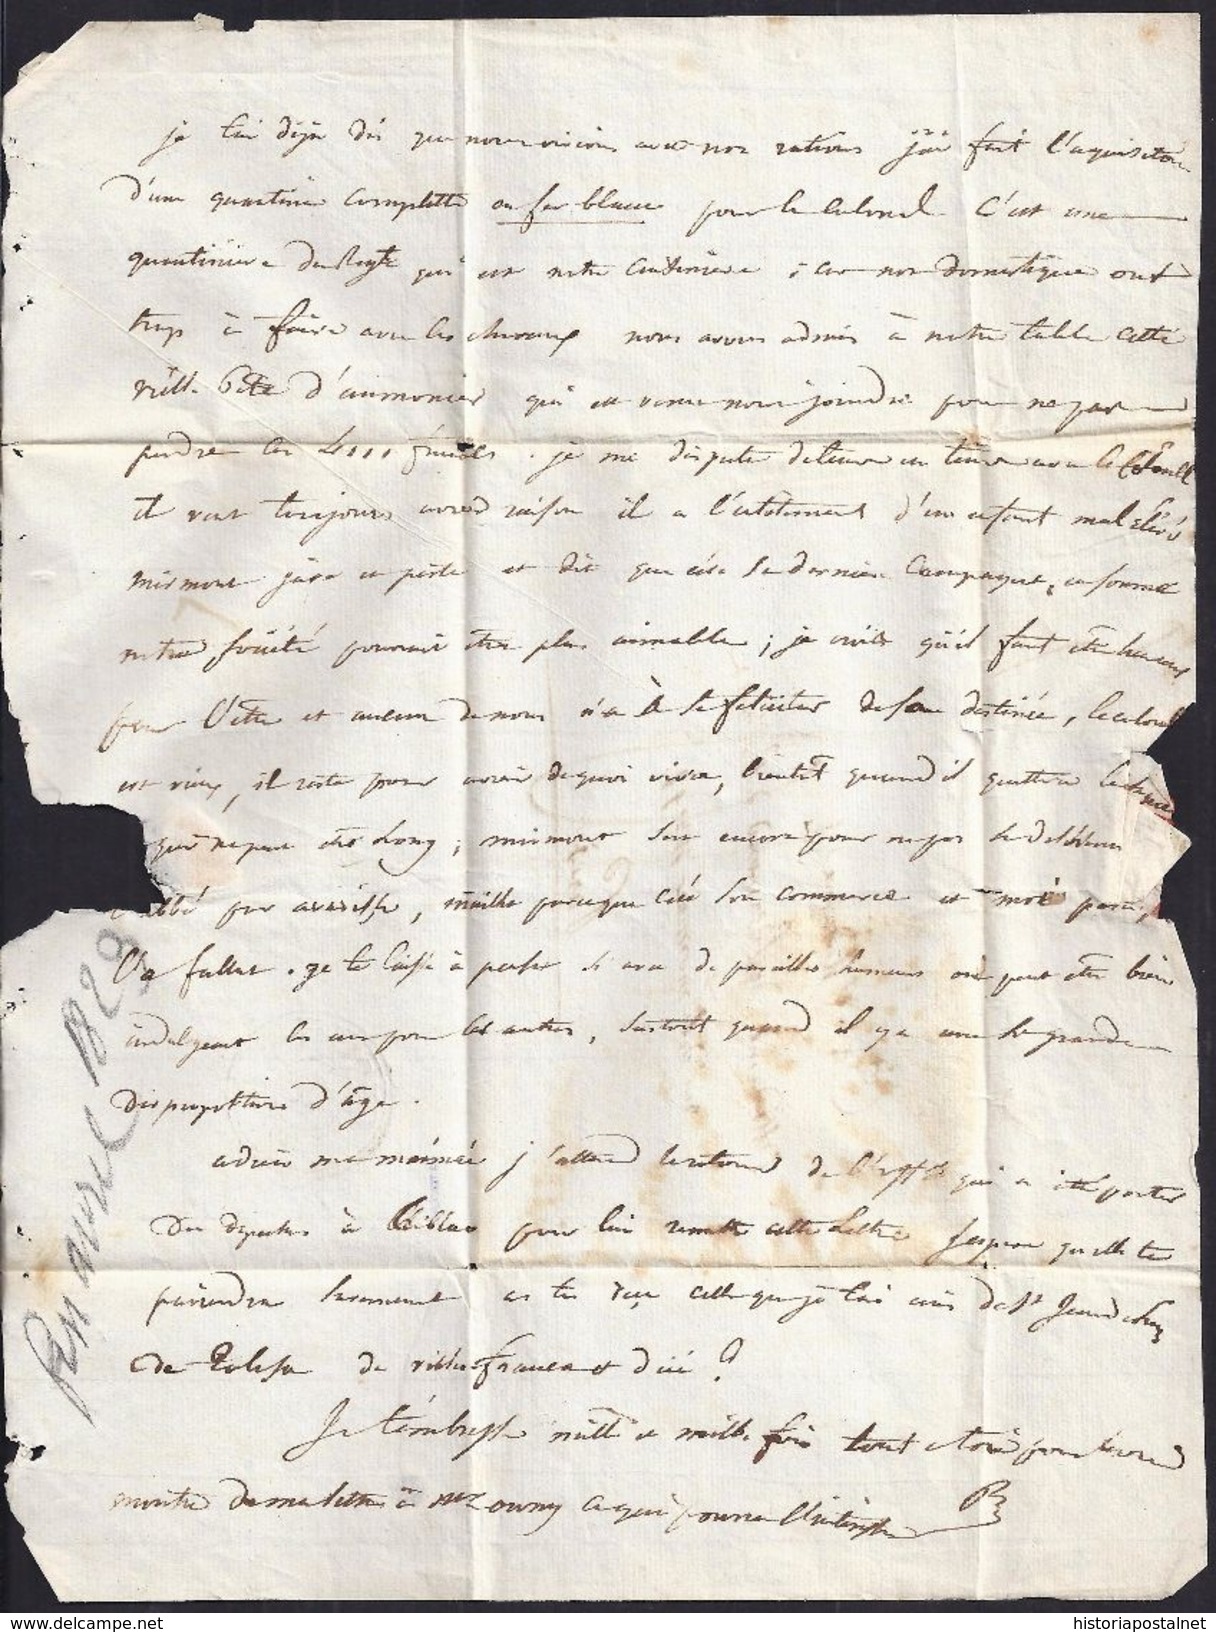 je t'ai déja dit que nous vivions avec nos rations j'ai fait l'aquisition
d'une quantine complette en fer blanc pour le colonel c'est une
quantiniere du Regt qui est notre cuisiniere ; car nos domestiques ont
trop à faire avec les chevaux nous avons admis à notre table cette
vieille bête d'aumonier qui est venu nous joindre pour ne pas
perdre les francs . je me dispute de tems en tems avec le Colonel
il veut toujours avoir raison il a l'entetement d'un enfant mal élévé
mirmont jure et peste et dit que c'est sa derniere Campagne, en somme
notre société pourrait être plus aimable ; je crois qu'il faut être heureux
pour l'etre et aucun de nous n'a à se feliciter de son destinée, le colonel
est vieux, il reste pour avoir de quoi vivre, bientôt quand il quittera
qui ne peut etre long ; mirmont sert encore pour ne pas
l'abbé par avarisse, mailhe parceque c'est son commerce et moi parce,
l'a fallut . je te laisse à penser si avec de pareilles humeurs on peut etre bien
indulgent les uns pour les autres, surtout quand il y a une si grande
disproportion d'âge .
adieu ma maimée j'attend le retour de qui a été porter
des depeches à Bilbao pour lui remettre cette lettre j'espere qu'elle te
parviendra surement as tu reçu celle que je t'ai ecris de St Jean de Luz
de Tolosa de villefranca et d'ici ?
Je t'embrasse mille et mille fois tout à toi pour la vie
montre de ma lettre à Mr ouvry ce qui pourra l'intéresser
avril 1823
historiapostalnet